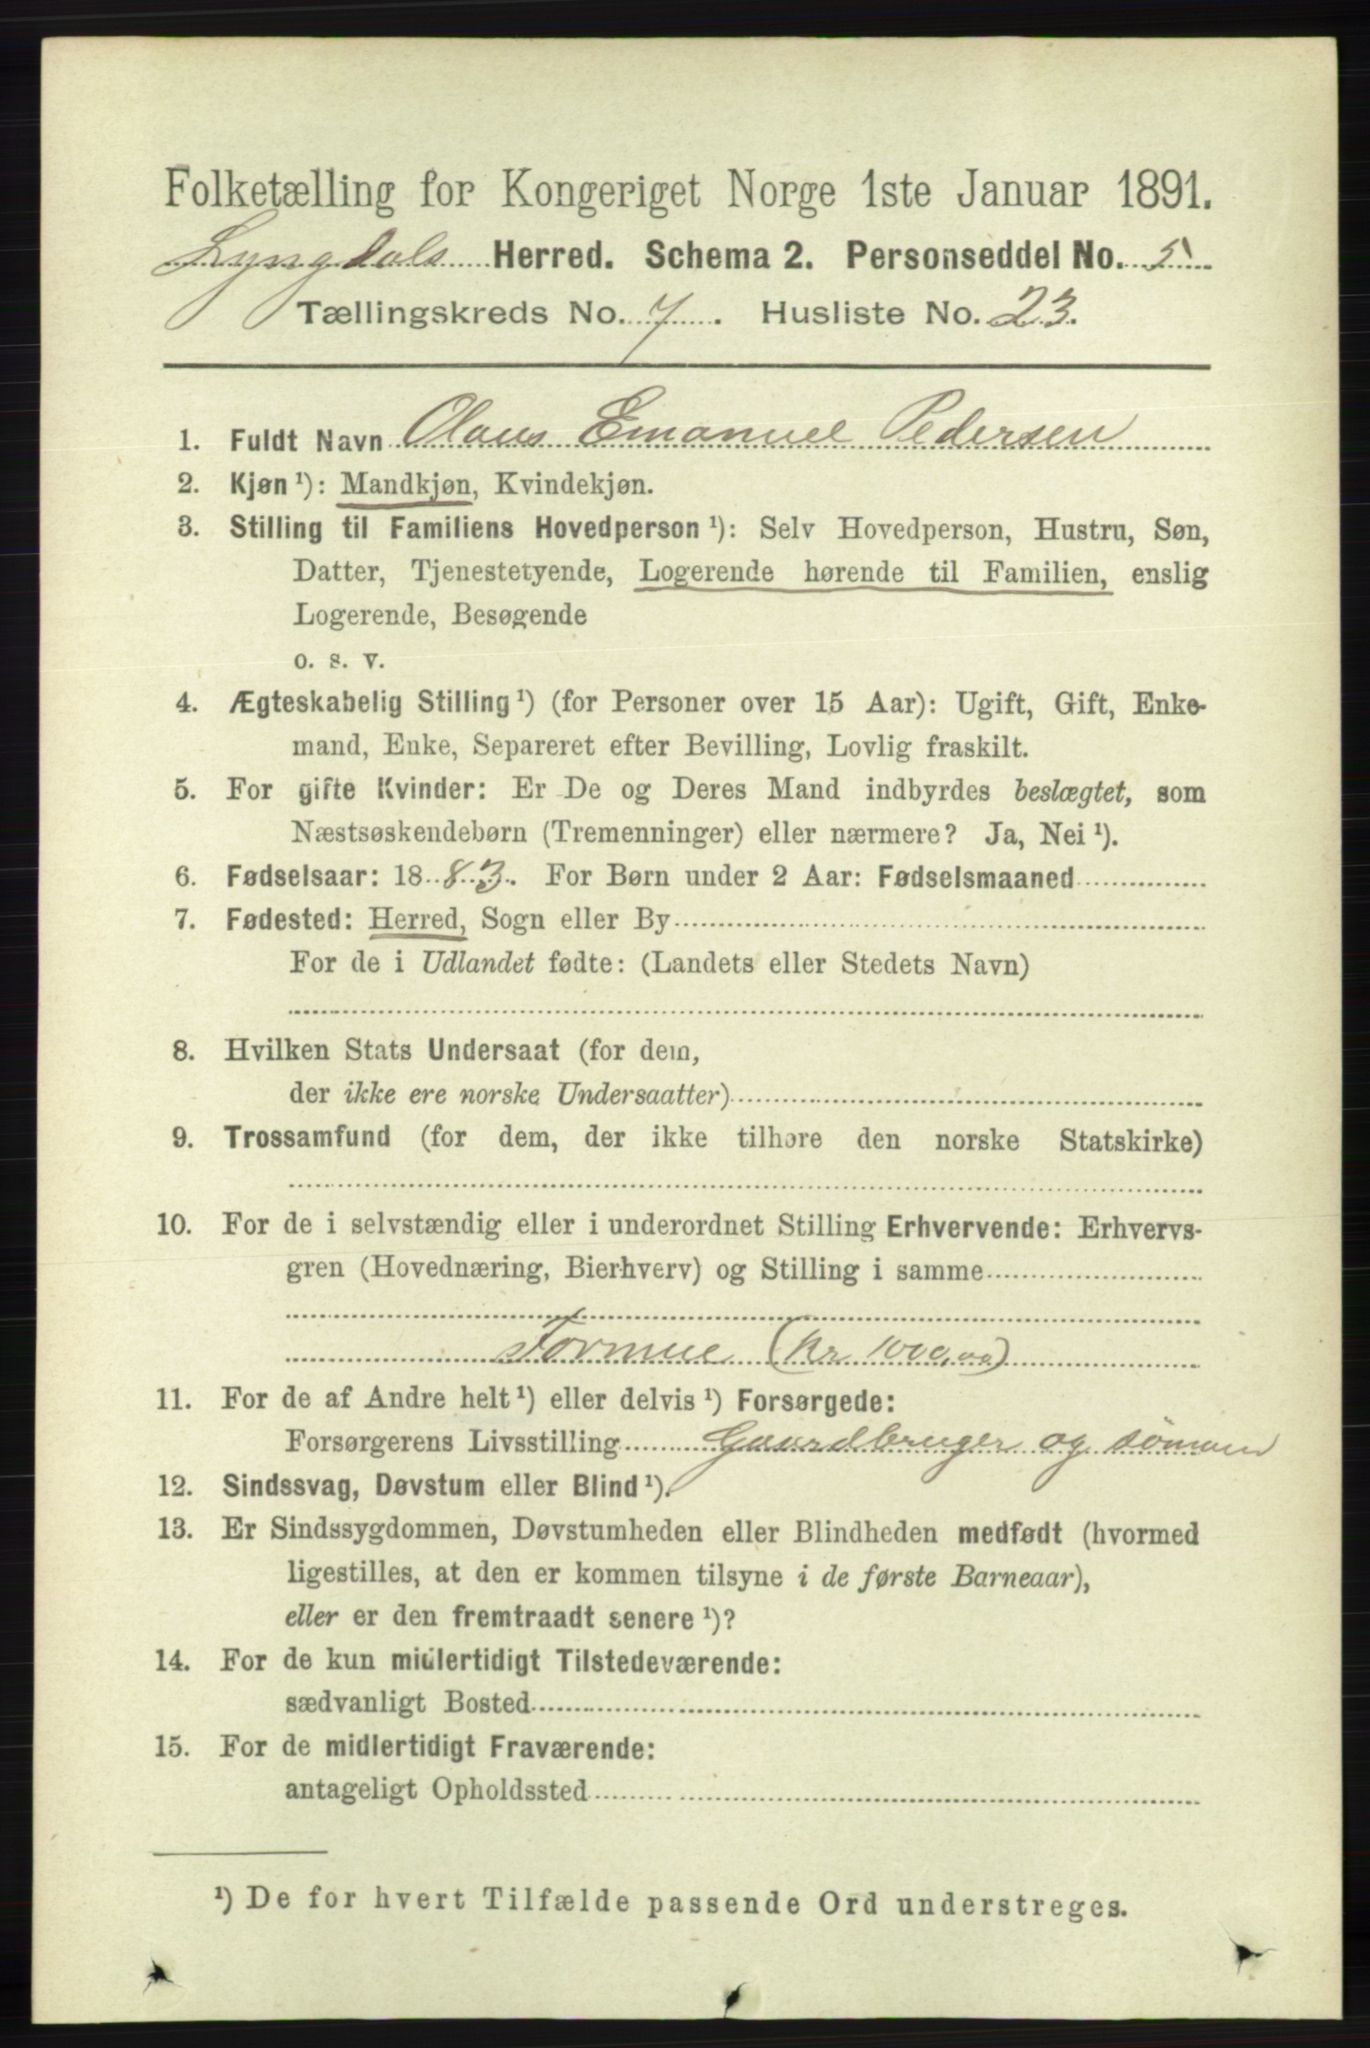 Folketælling for Kongeriget Norge 1ste Januar 1891.
Lyngdals Herred. Schema 2. Personseddel No. 5
Tællingskreds No. 7. Husliste No. 23.
1. Fuldt Navn Olaus Emanuel Pedersen
2. Kjøn ¹): Mandkjøn, Kvindekjøn.
3. Stilling til Familiens Hovedperson ¹): Selv Hovedperson, Hustru, Søn,
Datter, Tjenestetyende, Logerende hørende til Familien, enslig
Logerende, Besøgende
o. s. v.
4. Ægteskabelig Stilling ¹) (for Personer over 15 Aar): Ugift, Gift, Enke-
mand, Enke, Separeret efter Bevilling, Lovlig fraskilt.
5. For gifte Kvinder: Er De og Deres Mand indbyrdes beslægtet, som
Næstsøskendebørn (Tremenninger) eller nærmere? Ja, Nei ¹).
6. Fødselsaar: 1883. For Børn under 2 Aar: Fødselsmaaned
7. Fødested: Herred, Sogn eller By
For de i Udlandet fødte: (Landets eller Stedets Navn)
8. Hvilken Stats Undersaat (for dem,
der ikke ere norske Undersaatter)
9. Trossamfund (for dem, der ikke tilhøre den norske Statskirke)
10. For de i selvstændig eller i underordnet Stilling Erhvervende: Erhvervs-
gren (Hovednæring, Bierhverv) og Stilling i samme
Formue (Kr 1000,00)
11. For de af Andre helt ¹) eller delvis ¹) Forsørgede:
Forsørgerens Livsstilling Gaardbruger og sömand
12. Sindssvag, Døvstum eller Blind ¹).
13. Er Sindssygdommen, Døvstumheden eller Blindheden medfødt (hvormed
ligestilles, at den er kommen tilsyne i de første Barneaar),
eller er den fremtraadt senere ¹)?
14. For de kun midlertidigt Tilstedeværende:
sædvanligt Bosted
15. For de midlertidigt Fraværende:
antageligt Opholdssted
¹) De for hvert Tilfælde passende Ord understreges.